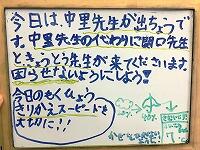 今日は、中里先生が出ちょうで
す。中里先生の代わりに関口先生
ときょうとう先生が来てくださいます。
困らせないようにしよう!
今日のもくひょう
きりかえスピードを
大切に!!